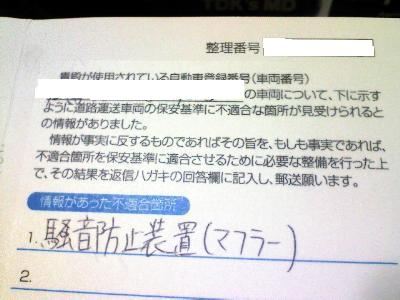 TDK's MD
整理番号
貴殿が使用されている自動車登録番号(車両番号)
の車両について、下に示す
ように道路運送車両の保安基準に不適合な箇所が見受けられると
の情報がありました。
情報が事実に反するものであればその旨を、もしも事実であれば、
不適合箇所を保安基準に適合させるために必要な整備を行った上
で、その結果を返信ハガキの回答欄に記入し、郵送願います。
情報があった不適合箇所
1. 騒音防止装置(マフラー)
2.